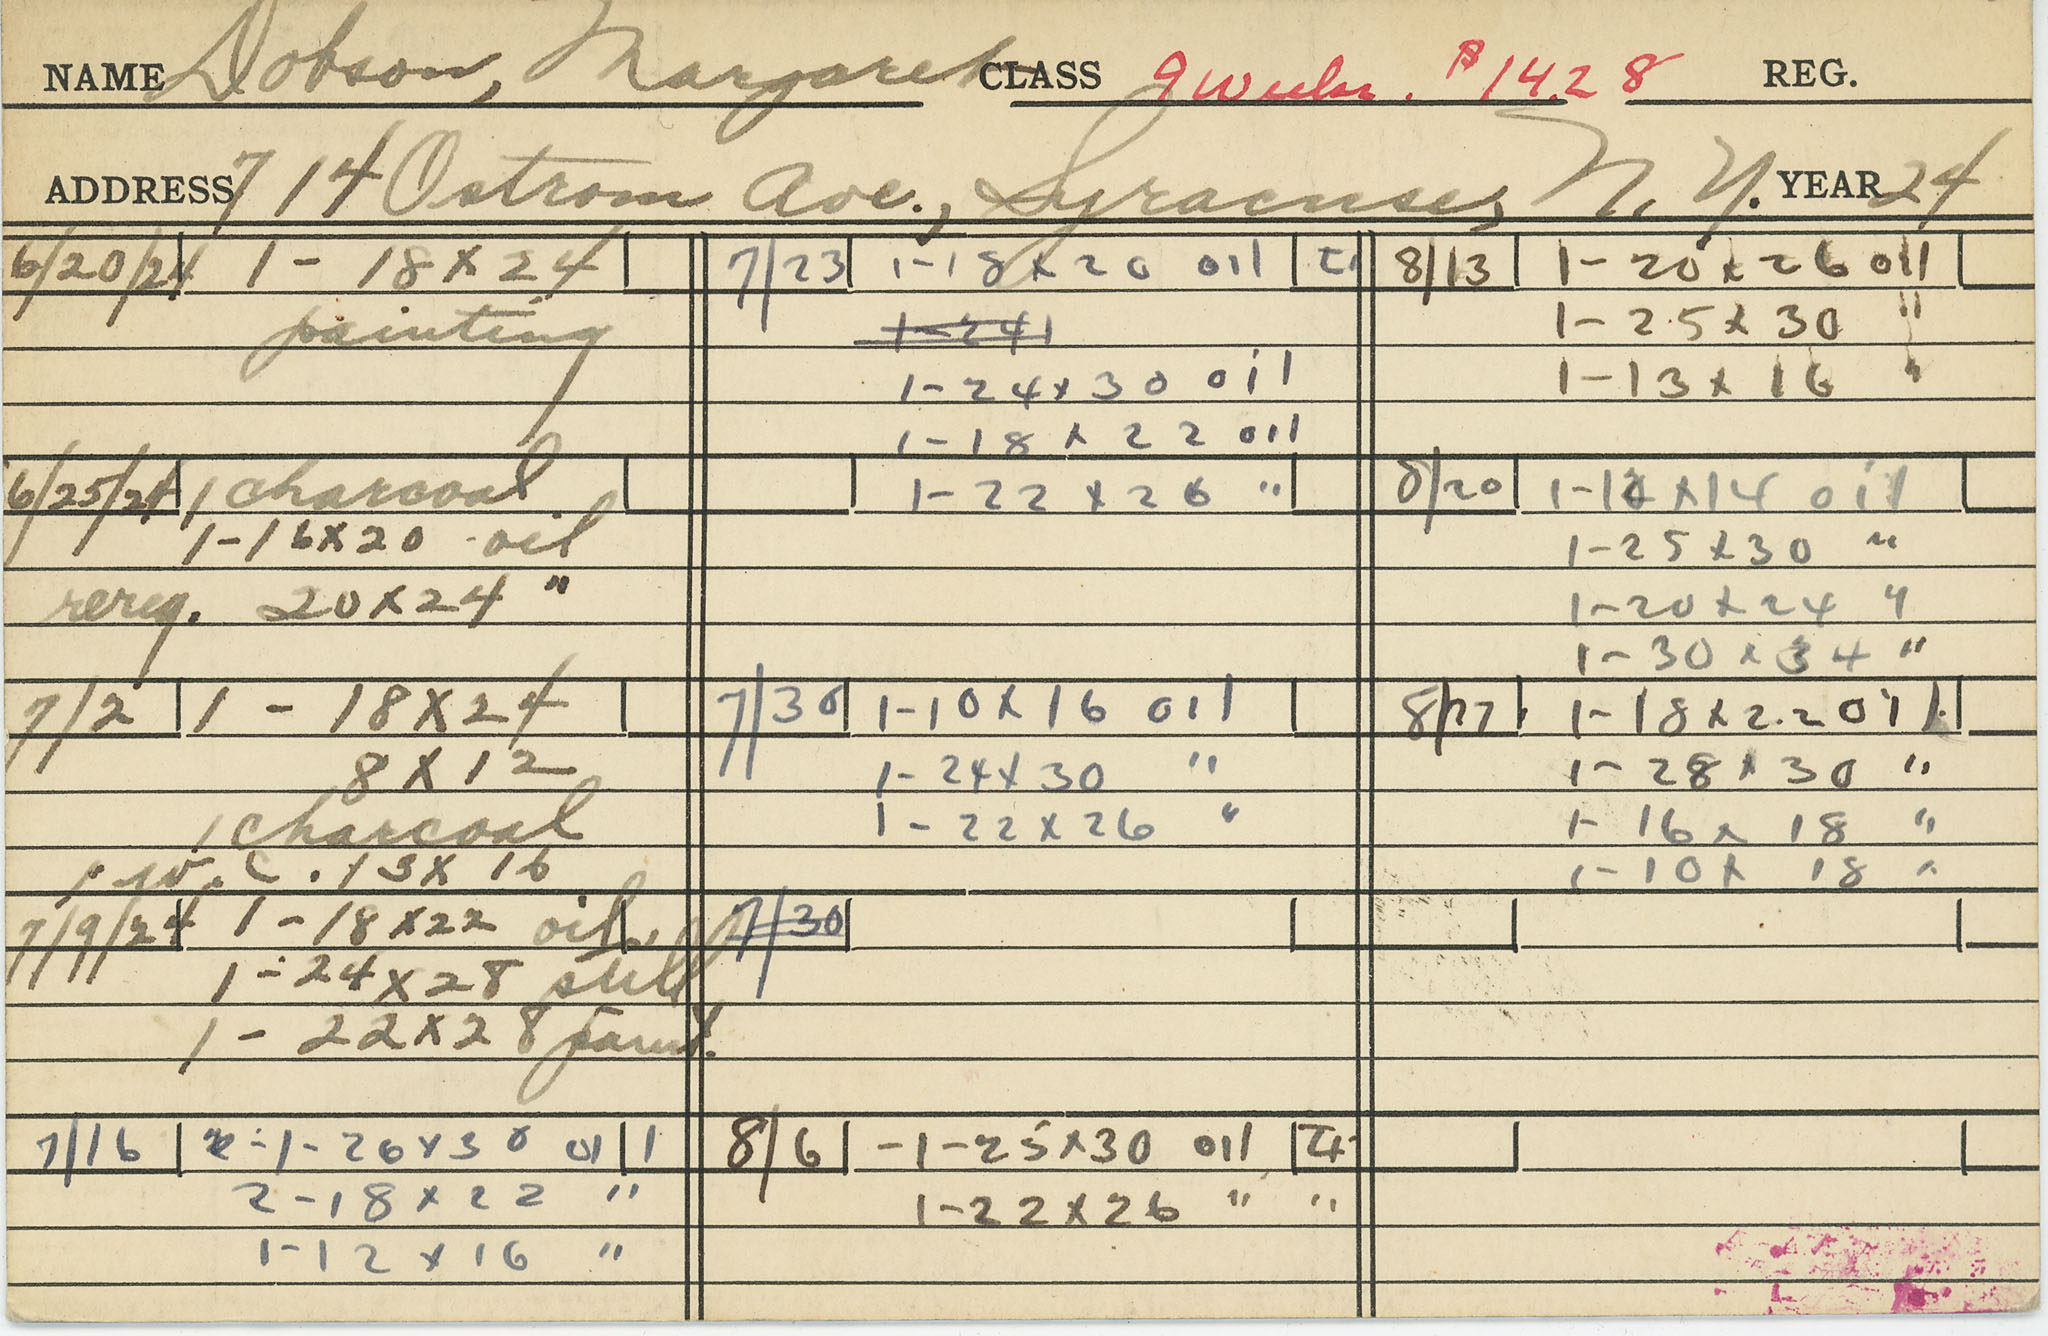 NAME Dobson, Margaret CLASS 9 weeks. $14.28 REG.
ADDRESS 714 Ostrom Ave., Syracuse, N. Y. YEAR 24
6/20/24 1 - 18 X 24
painting
6/25/24 1 charcoal
1-16 X 20 - oil
rereg. 20 X 24 "
7/2 1 - 18 X 24
8 X 12
1 charcoal
1 w. c. 13 X 16
7/9/24 1 - 18 X 22 oil
1 - 24 X 28 still
1 - 22 X 28
7/16 1 - 26 X 30 oil 1
2 - 18 X 22 "
1 - 12 X 16 "
7/23 1-18 X 20 oil
1-241
1-24 X 30 oil
1-18 X 22 oil
1-22 X 26 "
7/30 1-10 X 16 oil
1-24 X 30 "
1-22 X 26 "
7/30
8/6 -1-25 X 30 oil
1-22 X 26 " "
8/13 1-20 X 26 oil
1-25 X 30 "
1-13 X 16 "
8/20 X 14 oil
1-25 X 30 "
1-20 X 24 "
1-30 X 34 "
8/27 1-18 X 22 oil
1-28 X 30 "
1-16 X 18 "
1-10 X 18 "